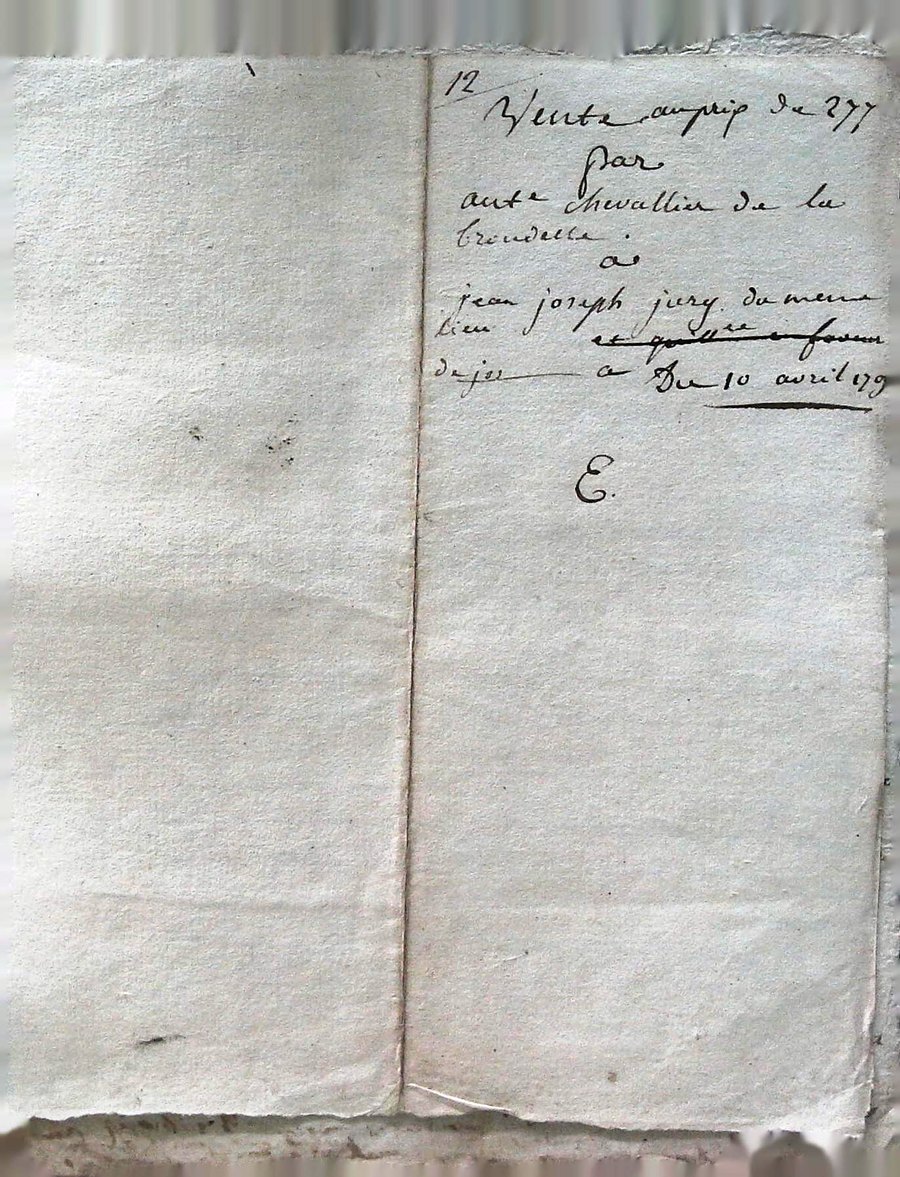 12
Vente au prix de 277
par
ante chevallier de la
brondelle.
a
jean joseph jury du meme
lieu et quittee
de jos a Du 10 avril 179
E.